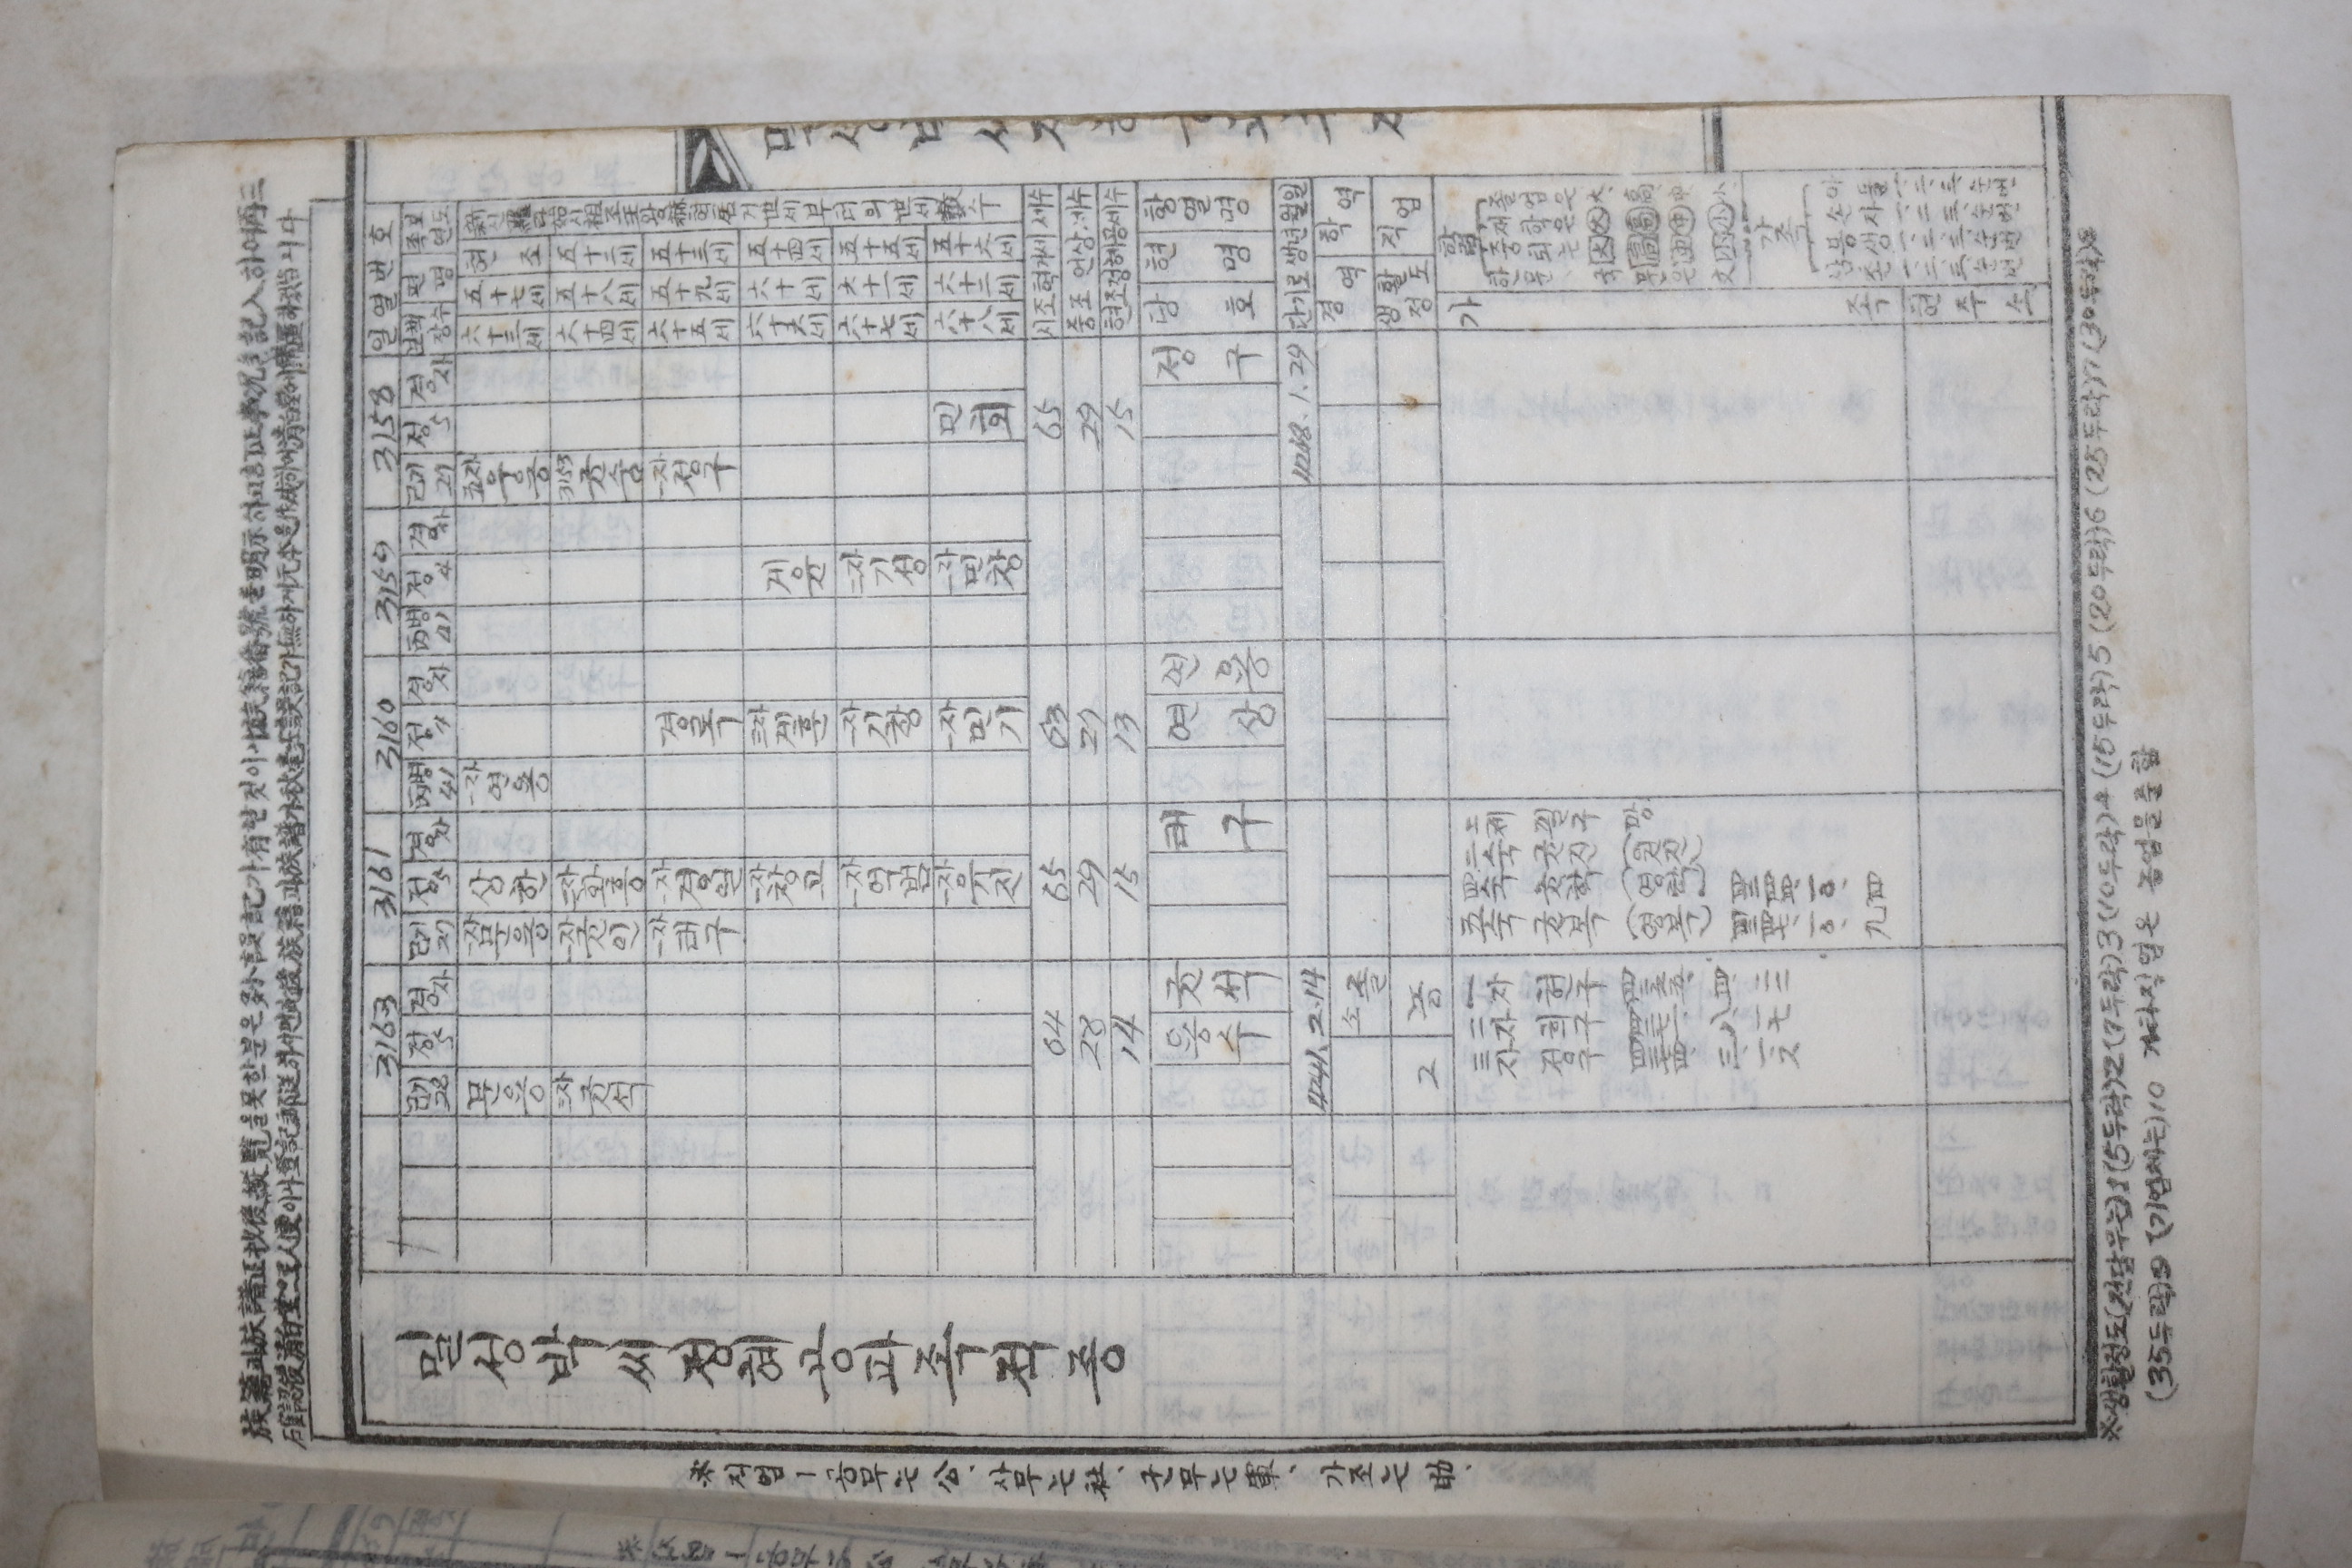 族籍과族譜正抄後縱覽을못한분은多少誤記가有할것이니族籍番號를明示하고訂正事況을記入하여再三
確認後清白堂으로人便이나登記郵送하시면此後族籍과族譜가秋毫도誤記가無하게元本을作成하여清白堂에備置하겠습니다
일열번호
3158
3159
3160
3161
3163
족보연도
편명
보책장수
경자
정5
근기29
경자
정4
丙병41
경자
정4
丙병41
경자
정5
근기27
경자
정5
근기28
新신羅라始시祖조王왕赫혁居거世세부터의世세數수
현조
五十二세
五十三세
五十四세
五十五세
五十六세
五十七세
五十八세
五十九세
六十세
六十一세
六十二세
六十三세
六十四세
六十五세
六十六세
六十七세
六十八세
민회
五자웅긍
3153 균숭
一자정구
게윤
二자기성
一자민창
경록
三자게훈
一자기창
一자민기
一자연용
상한
二자화흥
一자경원
一자창고
一자억범
一자유진
一자문응
一자균인
一자태구
문응
二자균석
시조혁거세 세수
65
63
65
64
중조 언상 세수
29
27
29
28
현조정혜공세수
15
13
15
14
항열명
현명
당호
정구
연용
연상
태구
균석
용수
단기로 생년월일
4268.1.29
4241.2.14
학역
경역
소졸
직업
생활정도
농
2
학력
졸업은 大、高、中、小
재학은 大 高 中 小
중퇴는 大 高 中 小
한문、국문은 文
가족
아들 一、二、三、순번
손자 一、二、三、순번
동생 一、二、三、순번
삼촌 一、二、三、순번
가족
二제 필구 망
二숙 균진 (원진)
四숙 균학 (영학) 四二四四、一0、四
五숙 균복 (영복) 四二四七、一0、九
一자 현구 四二六五、四、二二
二자 희구 四二七一、八、一七
三자 정구 四二七四、三、一六
현주소
밀성박씨정혜공파족적종
※직업ー공무는 公、사무는 社、군무는 軍、가조는 助、
※생활정도(전답무는)1 (5두락)2 (7두락)3 (10두락)4 (15두락)5 (20두락)6 (25두락)7 (30두락)8
(35두락)9 (기업체는)10 기타직업은 농업을준함